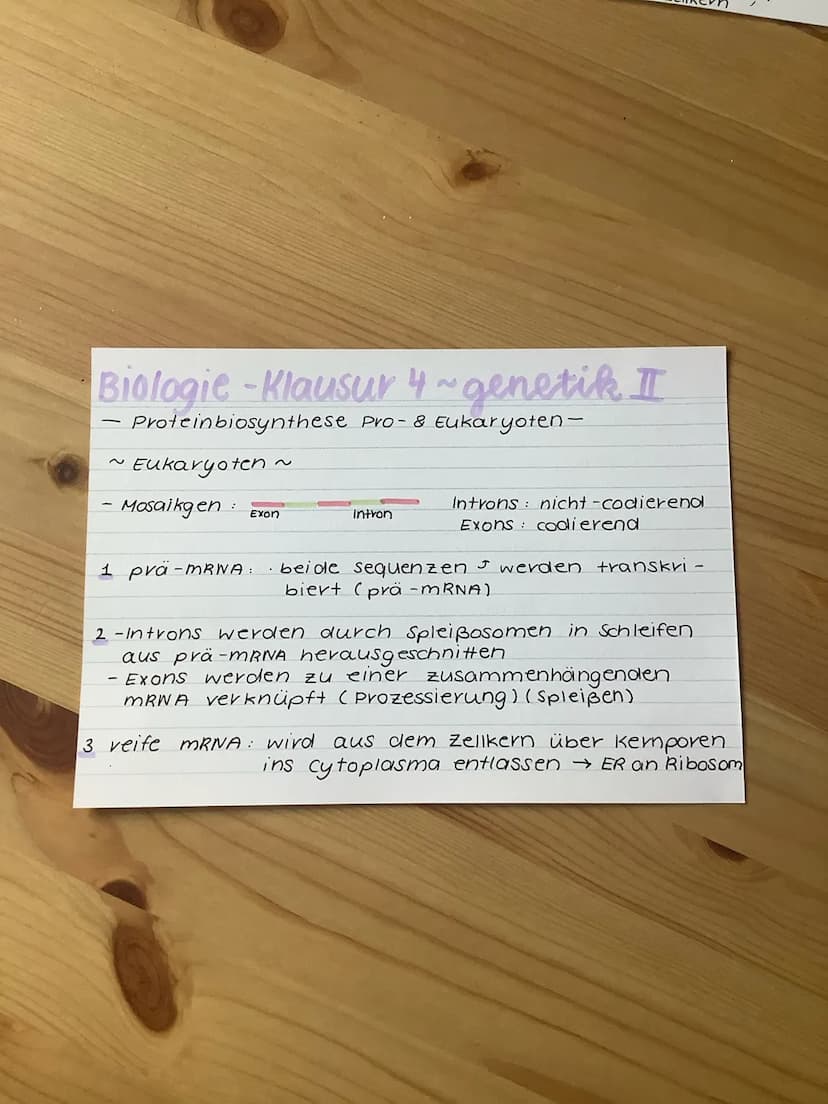 Biologie - Klausur 4 ~ genetik II
— Proteinbiosynthese Pro- & Eukaryoten —
~ Eukaryoten ~
- Mosaikgen : Introns : nicht-codierend
Exon Intron Exons : codierend
1 prä-mRNA : · beide sequenzen ⤴ werden transkri-
biert (prä-mRNA)
2 - Introns werden durch Spleißosomen in Schleifen
aus prä-mRNA herausgeschnitten
- Exons werden zu einer zusammenhängenden
mRNA verknüpft (Prozessierung) (Spleißen)
3 reife mRNA : wird aus dem Zellkern über Kernporen
ins Cytoplasma entlassen → ER an Ribosom